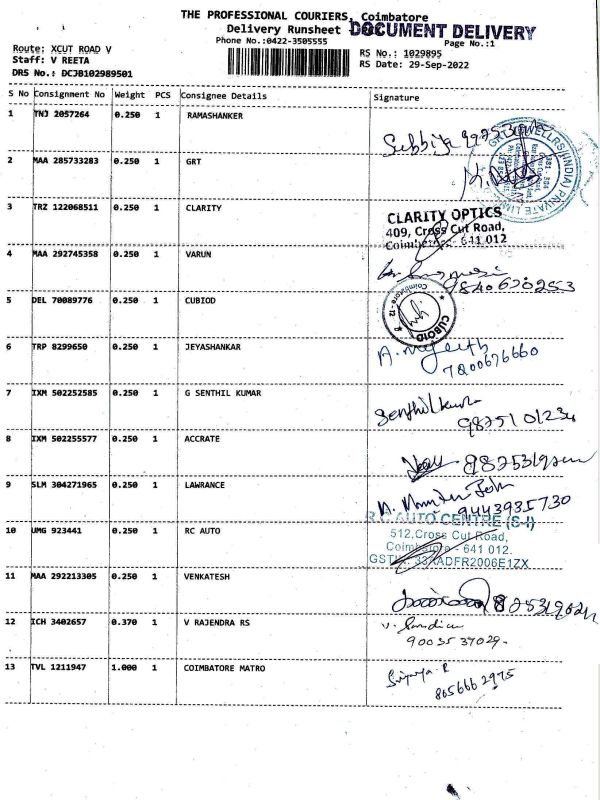 THE PROFESSIONAL COURIERS, Coimbatore
Delivery Runsheet DOCUMENT DELIVERY
Phone No.:0422-3505555 Page No.:1
Route: XCUT ROAD V RS No.: 1029895
Staff: V REETA RS Date: 29-Sep-2022
DRS No.: DCJB102989501
S No Consignment No Weight PCS Consignee Details Signature
1 TNJ 2057264 0.250 1 RAMASHANKER
2 MAA 285733283 0.250 1 GRT
3 TRZ 122068511 0.250 1 CLARITY
CLARITY OPTICS
409, Cross Cut Road,
Coimbatore - 641 012
4 MAA 292745358 0.250 1 VARUN
5 DEL 70089776 0.250 1 CUBIOD
CUBOID
Coimbatore - 12
6 TRP 8299650 0.250 1 JEYASHANKAR
7200676660
7 IXM 502252585 0.250 1 G SENTHIL KUMAR
Senthilkumar
8 IXM 502255577 0.250 1 ACCRATE
9 SLM 304271965 0.250 1 LAWRANCE
9443935730
10 UMG 923441 0.250 1 RC AUTO
R.C AUTO CENTRE (S-I)
512,Cross Cut Road,
Coimbatore - 641 012.
GSTIN: 33AADFR2006E1ZX
11 MAA 292213305 0.250 1 VENKATESH
12 ICH 3402657 0.370 1 V RAJENDRA RS
9003537029-
13 TVL 1211947 1.000 1 COIMBATORE MATRO
8056662975